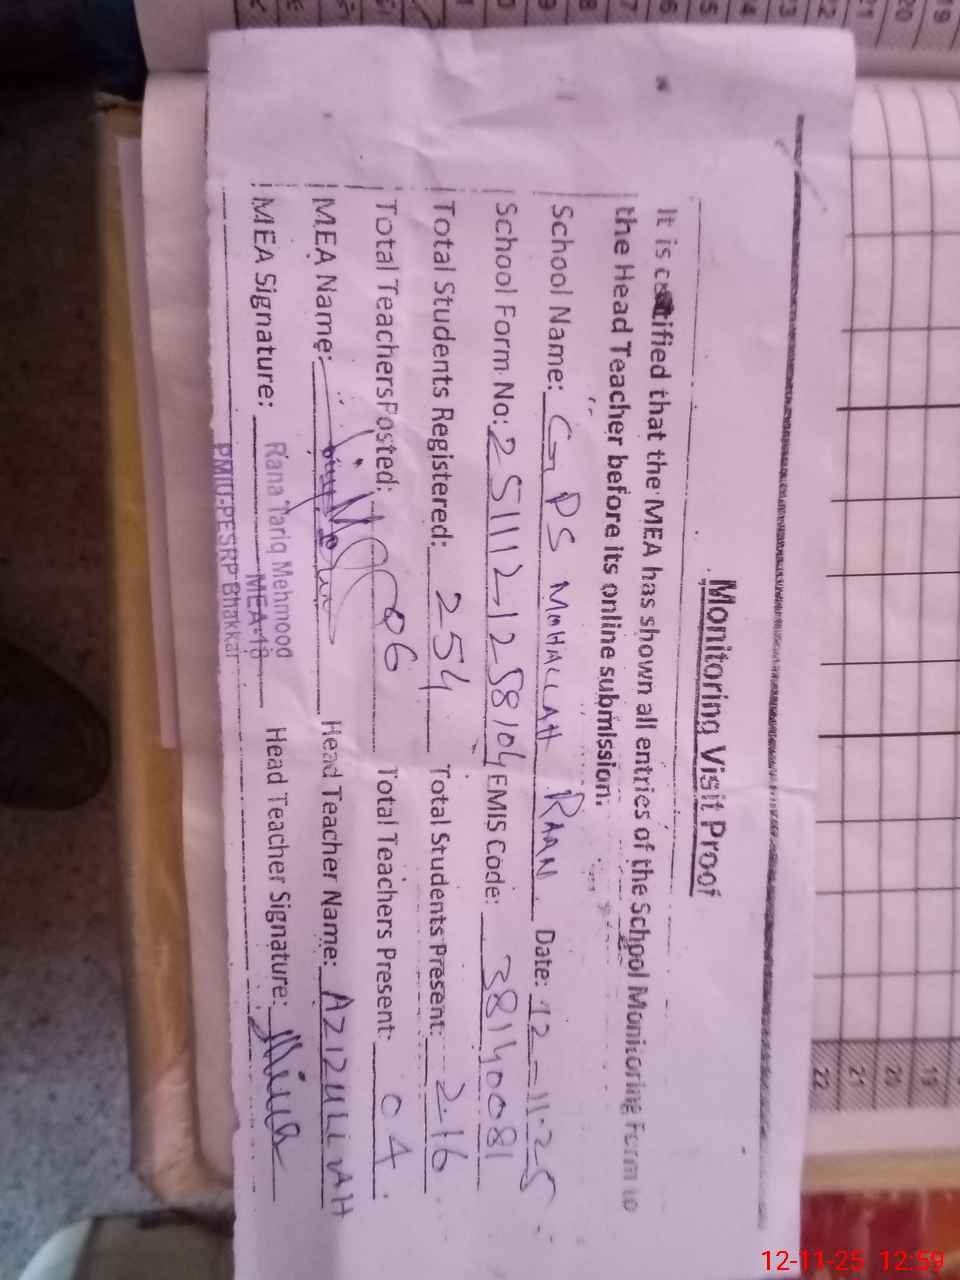 Monitoring Visit Proof
It is certified that the MEA has shown all entries of the School Monitoring Form to
the Head Teacher before its online submission.
School Name: GPS MOHALLAH RAAN Date: 12-11-25
School Form No: 251112-1258104 EMIS Code: 38140081
Total Students Registered: 254 Total Students Present: 216
Total Teachers Posted: 06 Total Teachers Present: 04
MEA Name: Head Teacher Name: AZIZULLAH
MEA Signature: Head Teacher Signature:
Rana Tariq Mehmood
MEA-18
PMIU-PESRP Bhakkar
22
21
20
19
12-11-25 12:59